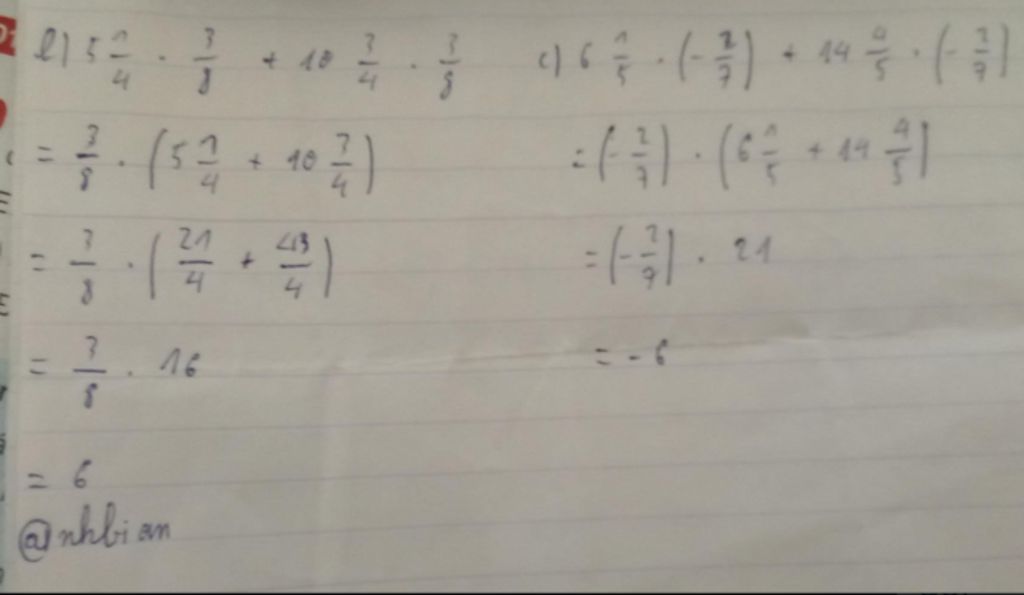 b) 5 1/4 . 3/8 + 10 3/4 . 3/8
= 3/8 . (5 1/4 + 10 3/4)
= 3/8 . (21/4 + 43/4)
= 3/8 . 16
= 6
@nhbian
c) 6 1/5 . (-2/7) + 14 4/5 . (-2/7)
= (-2/7) . (6 1/5 + 14 4/5)
= (-2/7) . 21
= -6